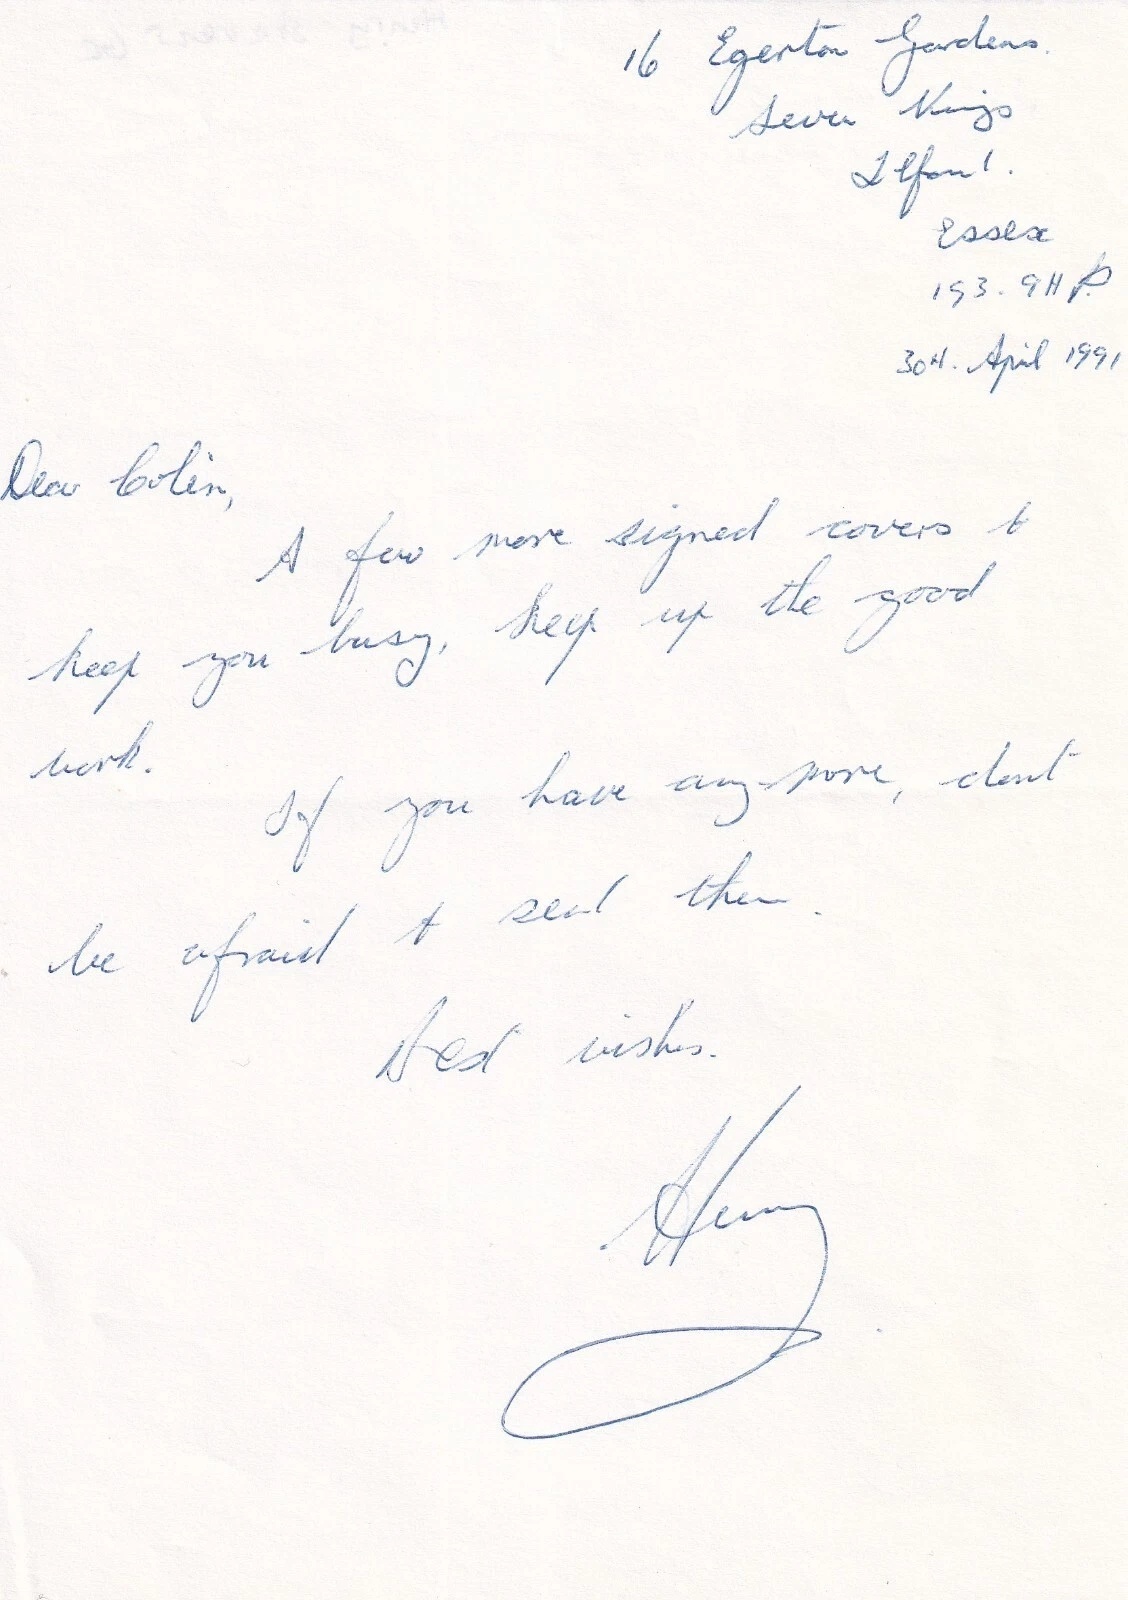 16 Egerton Gardens.
Seven Kings
Ilford.
Essex
1G3. 9HP.
30th. April 1991
Dear Colin,
A few more signed covers to
keep you busy, keep up the good
work.
If you have any more, dont
be afraid to send them.
Best wishes.
Henry